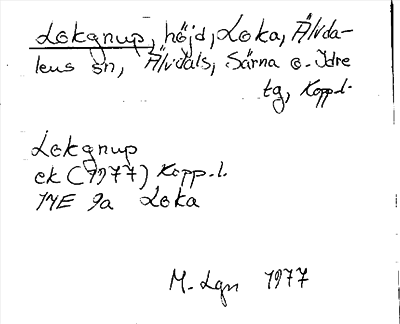 Lokgnup, höjd, Loka, Älvda-
lens sn, Älvdals, Särna o. Idre
tg, Kopp.l.
Lokgnup
ek (1977) Kopp.l.
14E 9a Loka
M. Lgn 1977